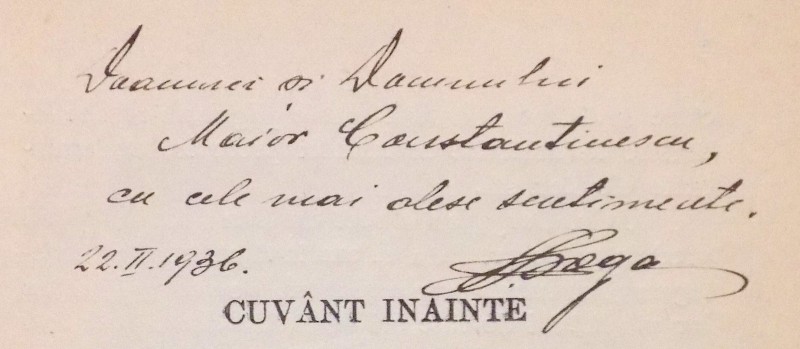 Doamnei și Domnului
Maior Constantinescu,
cu cele mai alese sentimente.
22.II.1936.
CUVÂNT INAINTE